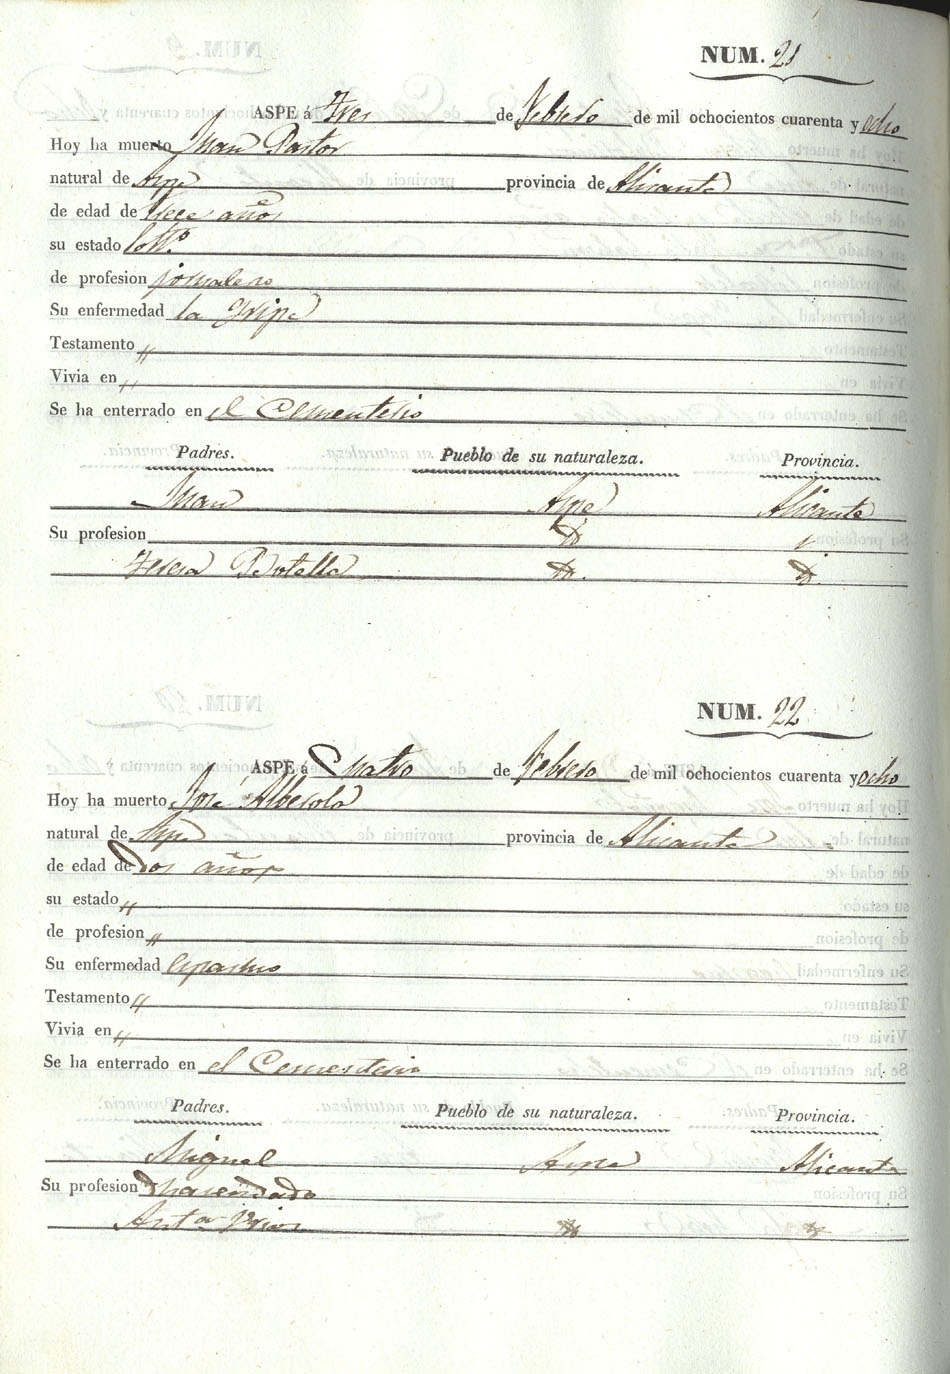 NUM. 21
ASPE á Tres de Febrero de mil ochocientos cuarenta y ocho
Hoy ha muerto Juan Pastor
natural de Aspe provincia de Alicante
de edad de trece años
su estado
de profesion jornalero
Su enfermedad la gripe
Testamento "
Vivia en "
Se ha enterrado en el Cementerio
Padres. Pueblo de su naturaleza. Provincia.
Juan Aspe Alicante
Su profesion
Teresa Botella
NUM. 22
ASPE á Cuatro de Febrero de mil ochocientos cuarenta y ocho
Hoy ha muerto José Alberola
natural de Aspe provincia de Alicante
de edad de dos años
su estado "
de profesion "
Su enfermedad Espasmo
Testamento "
Vivia en "
Se ha enterrado en el Cementerio
Padres. Pueblo de su naturaleza. Provincia.
Miguel Aspe Alicante
Su profesion hacendado
Anta